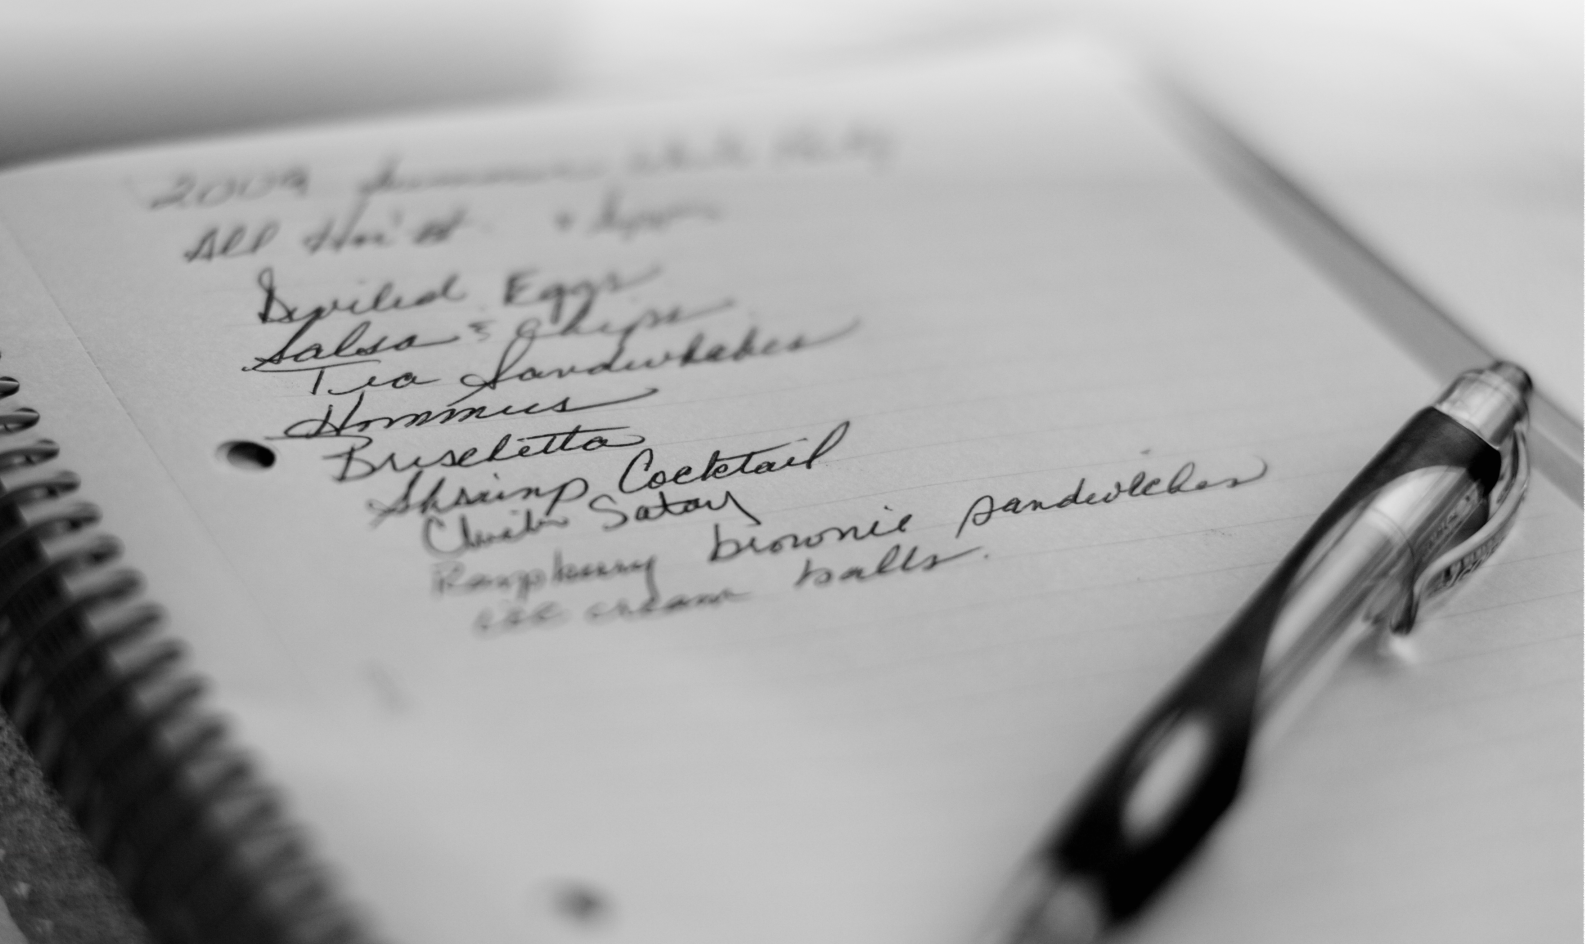 2009 Summer White Party
All Hor'
Deviled Eggs
Salsa & Chips
Tea Sandwhches
Hommus
Bruschetta
Shrimp Cocktail
Satay
Raspberry brownie sandwiches
ice cream balls.